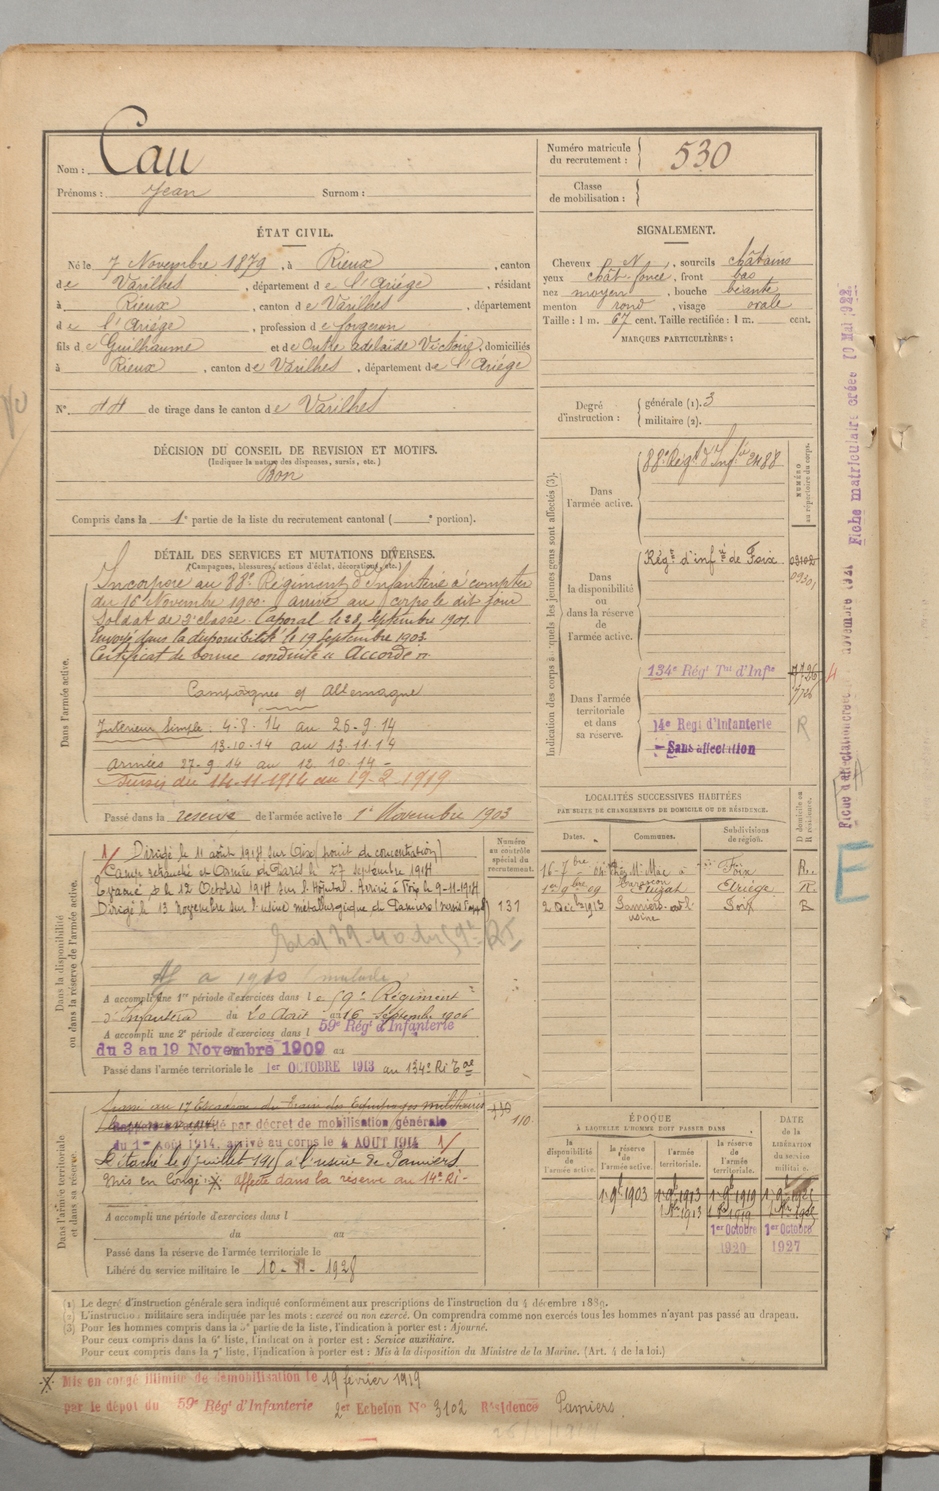 Nom : Cau
Prénoms : Jean Surnom :
Numéro matricule du recrutement : 530
Classe de mobilisation :
ÉTAT CIVIL.
Né le 7 Novembre 1879, à Rieux, canton
de Varilhes, département de l'Ariége, résidant
à Rieux, canton de Varilhes, département
de l'Ariége, profession de forgeron
fils de Guilhaume et de Adelaide Victoire, domiciliés
à Rieux, canton de Varilhes, département de l'Ariége
N° 44 de tirage dans le canton de Varilhes
SIGNALEMENT.
Cheveux N, sourcils châtains
yeux chât. foncé, front bas
nez moyen, bouche béante
menton rond, visage ovale
Taille : 1 m. 67 cent. Taille rectifiée : 1 m. cent.
MARQUES PARTICULIÈRES :
Degré d'instruction : générale (1). 3
militaire (2).
DÉCISION DU CONSEIL DE REVISION ET MOTIFS.
(Indiquer la nature des dispenses, sursis, etc.)
Bon
Compris dans la 1e partie de la liste du recrutement cantonal ( e portion).
DÉTAIL DES SERVICES ET MUTATIONS DIVERSES.
(Campagnes, blessures, actions d'éclat, décorations, etc.)
Dans l'armée active.
Incorporé au 88e Régiment d'infanterie à compter
du 16 Novembre 1900. arrivé au corps le dit jour
Soldat de 2e classe. Caporal le 28 Septembre 1901.
Envoyé dans la disponibilité le 19 Septembre 1903.
Certificat de bonne conduite "Accordé".
Campagnes Allemagne
Intérieur simple : 4-8-14 au 26-9-14
13-10-14 au 13-11-14
Armées 27-9-14 au 12-10-14 -
Sursis du 14-11-1914 au 19-2-1919
Passé dans la réserve de l'armée active le 1er Novembre 1903
Indication des corps auxquels les jeunes gens sont affectés (3).
NUMÉRO au répertoire du corps.
Dans l'armée active. 88e Régt d'Infie 2488
Dans la disponibilité ou dans la réserve de l'armée active. Régt d'infie de Foix
Dans l'armée territoriale et dans sa réserve.
134e Régt Tal d'Infie
7726
14e Regt d'Infanterie R
Sans affectation
LOCALITÉS SUCCESSIVES HABITÉES
PAR SUITE DE CHANGEMENTS DE DOMICILE OU DE RÉSIDENCE.
Dates. Communes. Subdivisions de région. D domicile ou R résidence.
Foix R
R
2 Déc 1913 Pamiers usine Foix R
Dans la disponibilité ou dans la réserve de l'armée active.
Numéro au contrôle spécial du recrutement.
Dirigé le 11 août 1914 sur Foix (point de concentration)
Camp retranché et Armée de Paris le 27 septembre 1914
Evacué le 12 Octobre 1914 sur l'Hôpital. Arrivé à Foix le 9-11-1914
Dirigé le 13 novembre sur l'usine métallurgique de Pamiers 131
A accompli une 1re période d'exercices dans le 59e Régiment
d'Infanterie du 20 Août au 16 Septembre 1906
A accompli une 2e période d'exercices dans l 59e Régt d'Infanterie
du 3 au 19 Novembre 1909 au
Passé dans l'armée territoriale le 1er OCTOBRE 1913 au 134e Ri Tal
Dans l'armée territoriale et dans sa réserve.
Passé au 17 Escadron du Train des Equipages militaires
par décret de mobilisation générale 110
du 1er Août 1914, arrivé au corps le 4 AOUT 1914
Détaché le 9 juillet 1915 à l'usine de Pamiers
Mis en congé affecté dans la réserve au 14e Ri -
A accompli une période d'exercices dans l
du au
Passé dans la réserve de l'armée territoriale le
Libéré du service militaire le 10-11-1928
ÉPOQUE
A LAQUELLE L'HOMME DOIT PASSER DANS
la disponibilité de l'armée active. la réserve de l'armée active. l'armée territoriale. la réserve de l'armée territoriale. DATE de la LIBÉRATION du service militaire.
1er Octobre 1920 1er Octobre 1927
(1) Le degré d'instruction générale sera indiqué conformément aux prescriptions de l'instruction du 4 décembre 1889.
(2) L'instruction militaire sera indiquée par les mots : exercé ou non exercé. On comprendra comme non exercés tous les hommes n'ayant pas passé au drapeau.
(3) Pour les hommes compris dans la 5e partie de la liste, l'indication à porter est : Ajourné.
Pour ceux compris dans la 6e liste, l'indication à porter est : Service auxiliaire.
Pour ceux compris dans la 7e liste, l'indication à porter est : Mis à la disposition du Ministre de la Marine. (Art. 4 de la loi.)
Mis en congé illimité de démobilisation le 19 février 1919
par le dépot du 59e Régt d'Infanterie 2er Echelon N° 3102 Résidence Pamiers.
Fiche matriculaire créée 10 Mai 1922